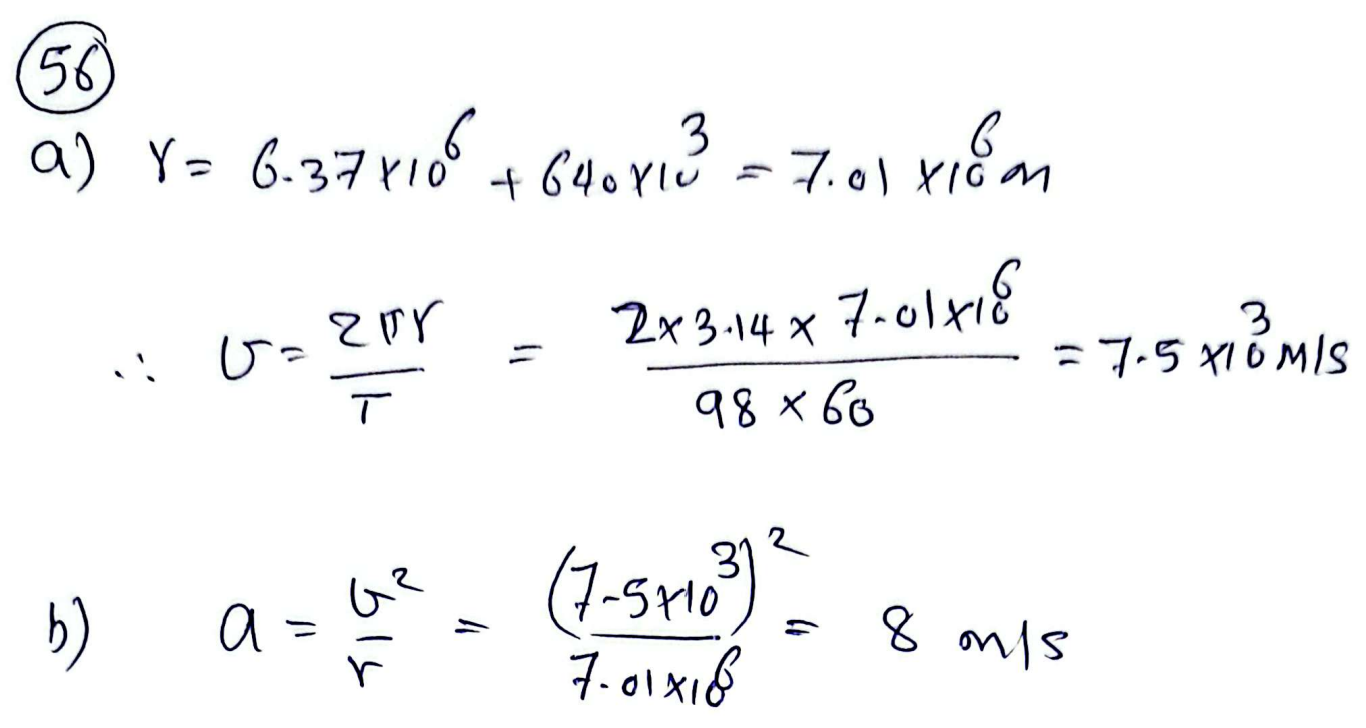 56
a) r = 6.37 × 10⁶ + 640 × 10³ = 7.01 × 10⁶ m
∴ v = 2πr / T = 2 × 3.14 × 7.01 × 10⁶ / 98 × 60 = 7.5 × 10³ m/s
b) a = v² / r = (7.5 × 10³)² / 7.01 × 10⁶ = 8 m/s